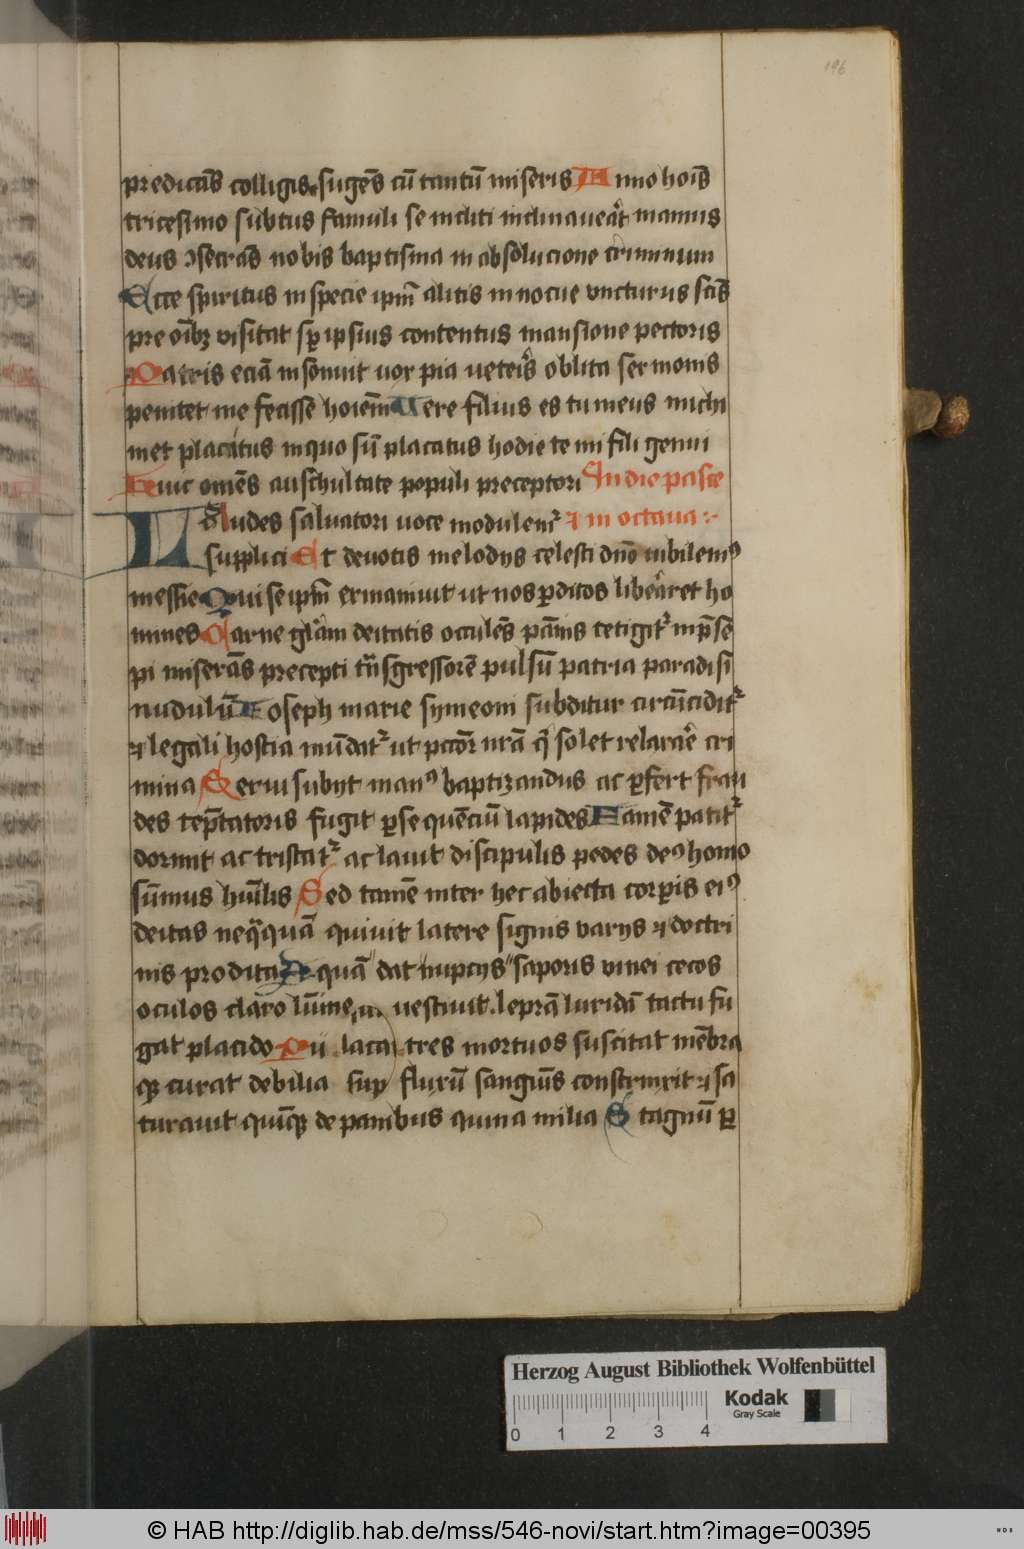 196
predicās colligis sugēs cū tantū miseris Anno hoīs
tricesimo subtus famuli se incliti inclinaueāt manus
deus ɔsecrās nobis baptisma in absolucione criminum
Ecce spiritus in specie ipm̄ alitis innocue vncturus scīs
pre oīb⁊ visitat sp̄ ipsius contentus mansione pectoris
Patris eciā insonuit uox pia ueteis oblita sermonis
penitet me fecisse hoīem Uere filius es tu meus michi
met placatus in quo sū placatus hodie te mi fili genui
Huic omēs auschultate populi preceptori In die pasce
Laudes saluatori uoce modulem̄ ⁊ in octaua
supplici Et deuotis melodijs celesti dn̄o iubilemꝰ
messie Qui se ipm̄ exinaniuit ut nos ꝑditos liberaret ho
mines Carne gl̄am deitatis oculēs pānis tetigit̄ in p̄se
pi miserās precepti tn̄sgressorē pulsū patria paradisi
nudulū Ioseph marie symeoni subditur circūcidit̄
⁊ legali hostia mūdat̄ ut pccōr nr̄a q̄ solet relaxare cri
mina Serui subijt manꝰ baptizandus ac ꝑfert frau
des tēptatoris fugit ꝑsequēciū lapides Famē patit̄
dormit ac tristat̄ ac lauit discipulis pedes deꝰ homo
sūmus hūilis Sed tamē inter hec abiecta corꝑis eiꝰ
deitas neq̄quā quiuit latere signis varijs ⁊ doctri
nis prodita Aquā dat nupcijs saporis vinei cecos
oculos claro lūine uestiuit leprā luridā tactu fu
gat placido Putres mortuos suscitat mēbra
qꝫ curat debilia sup fluxū sanguīs constrinxit ⁊ sa
turauit quīqꝫ de panibus quina milia Stagnū ꝑ
Herzog August Bibliothek Wolfenbüttel
Kodak
Gray Scale
0 1 2 3 4
© HAB http://diglib.hab.de/mss/546-novi/start.htm?image=00395